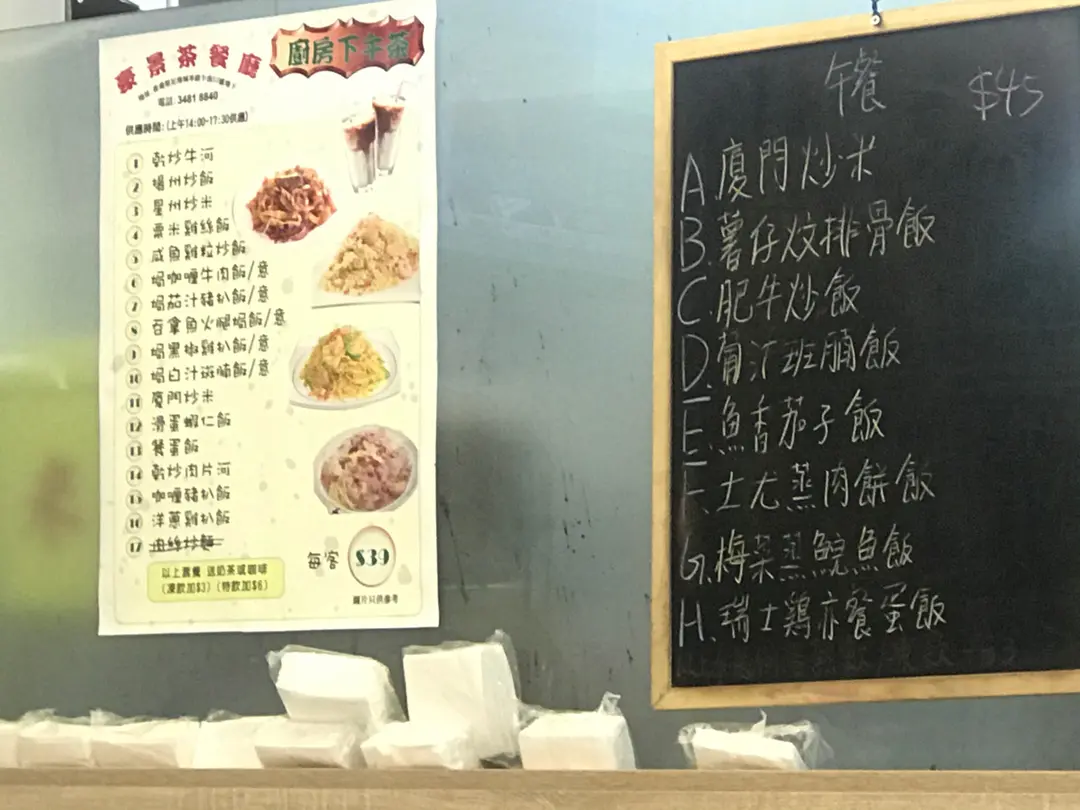 豪景茶餐廳
廚房下午茶
電話:3481 8840
供應時間:(上午14:00-17:30供應)
1 乾炒牛河
2 揚州炒飯
3 星州炒米
4 粟米雞絲飯
5 咸魚雞粒炒飯
6 焗咖喱牛肉飯/意
7 焗茄汁豬扒飯/意
8 吞拿魚火腿焗飯/意
9 焗黑椒雞扒飯/意
10 焗白汁斑腩飯/意
11 廈門炒米
12 滑蛋蝦仁飯
13 餐蛋飯
14 乾炒肉片河
15 咖喱豬扒飯
16 洋蔥雞扒飯
17 肉絲炒麵
每客 $39
以上套餐 送奶茶或咖啡
(凍飲加$3) (特飲加$6)
圖片只供參考
午餐 $45
A.廈門炒米
B.薯仔炆排骨飯
C.肥牛炒飯
D.葡汁班腩飯
E.魚香茄子飯
F.土尤蒸肉餅飯
G.梅菜蒸鯇魚飯
H.瑞士鷄亦餐蛋飯